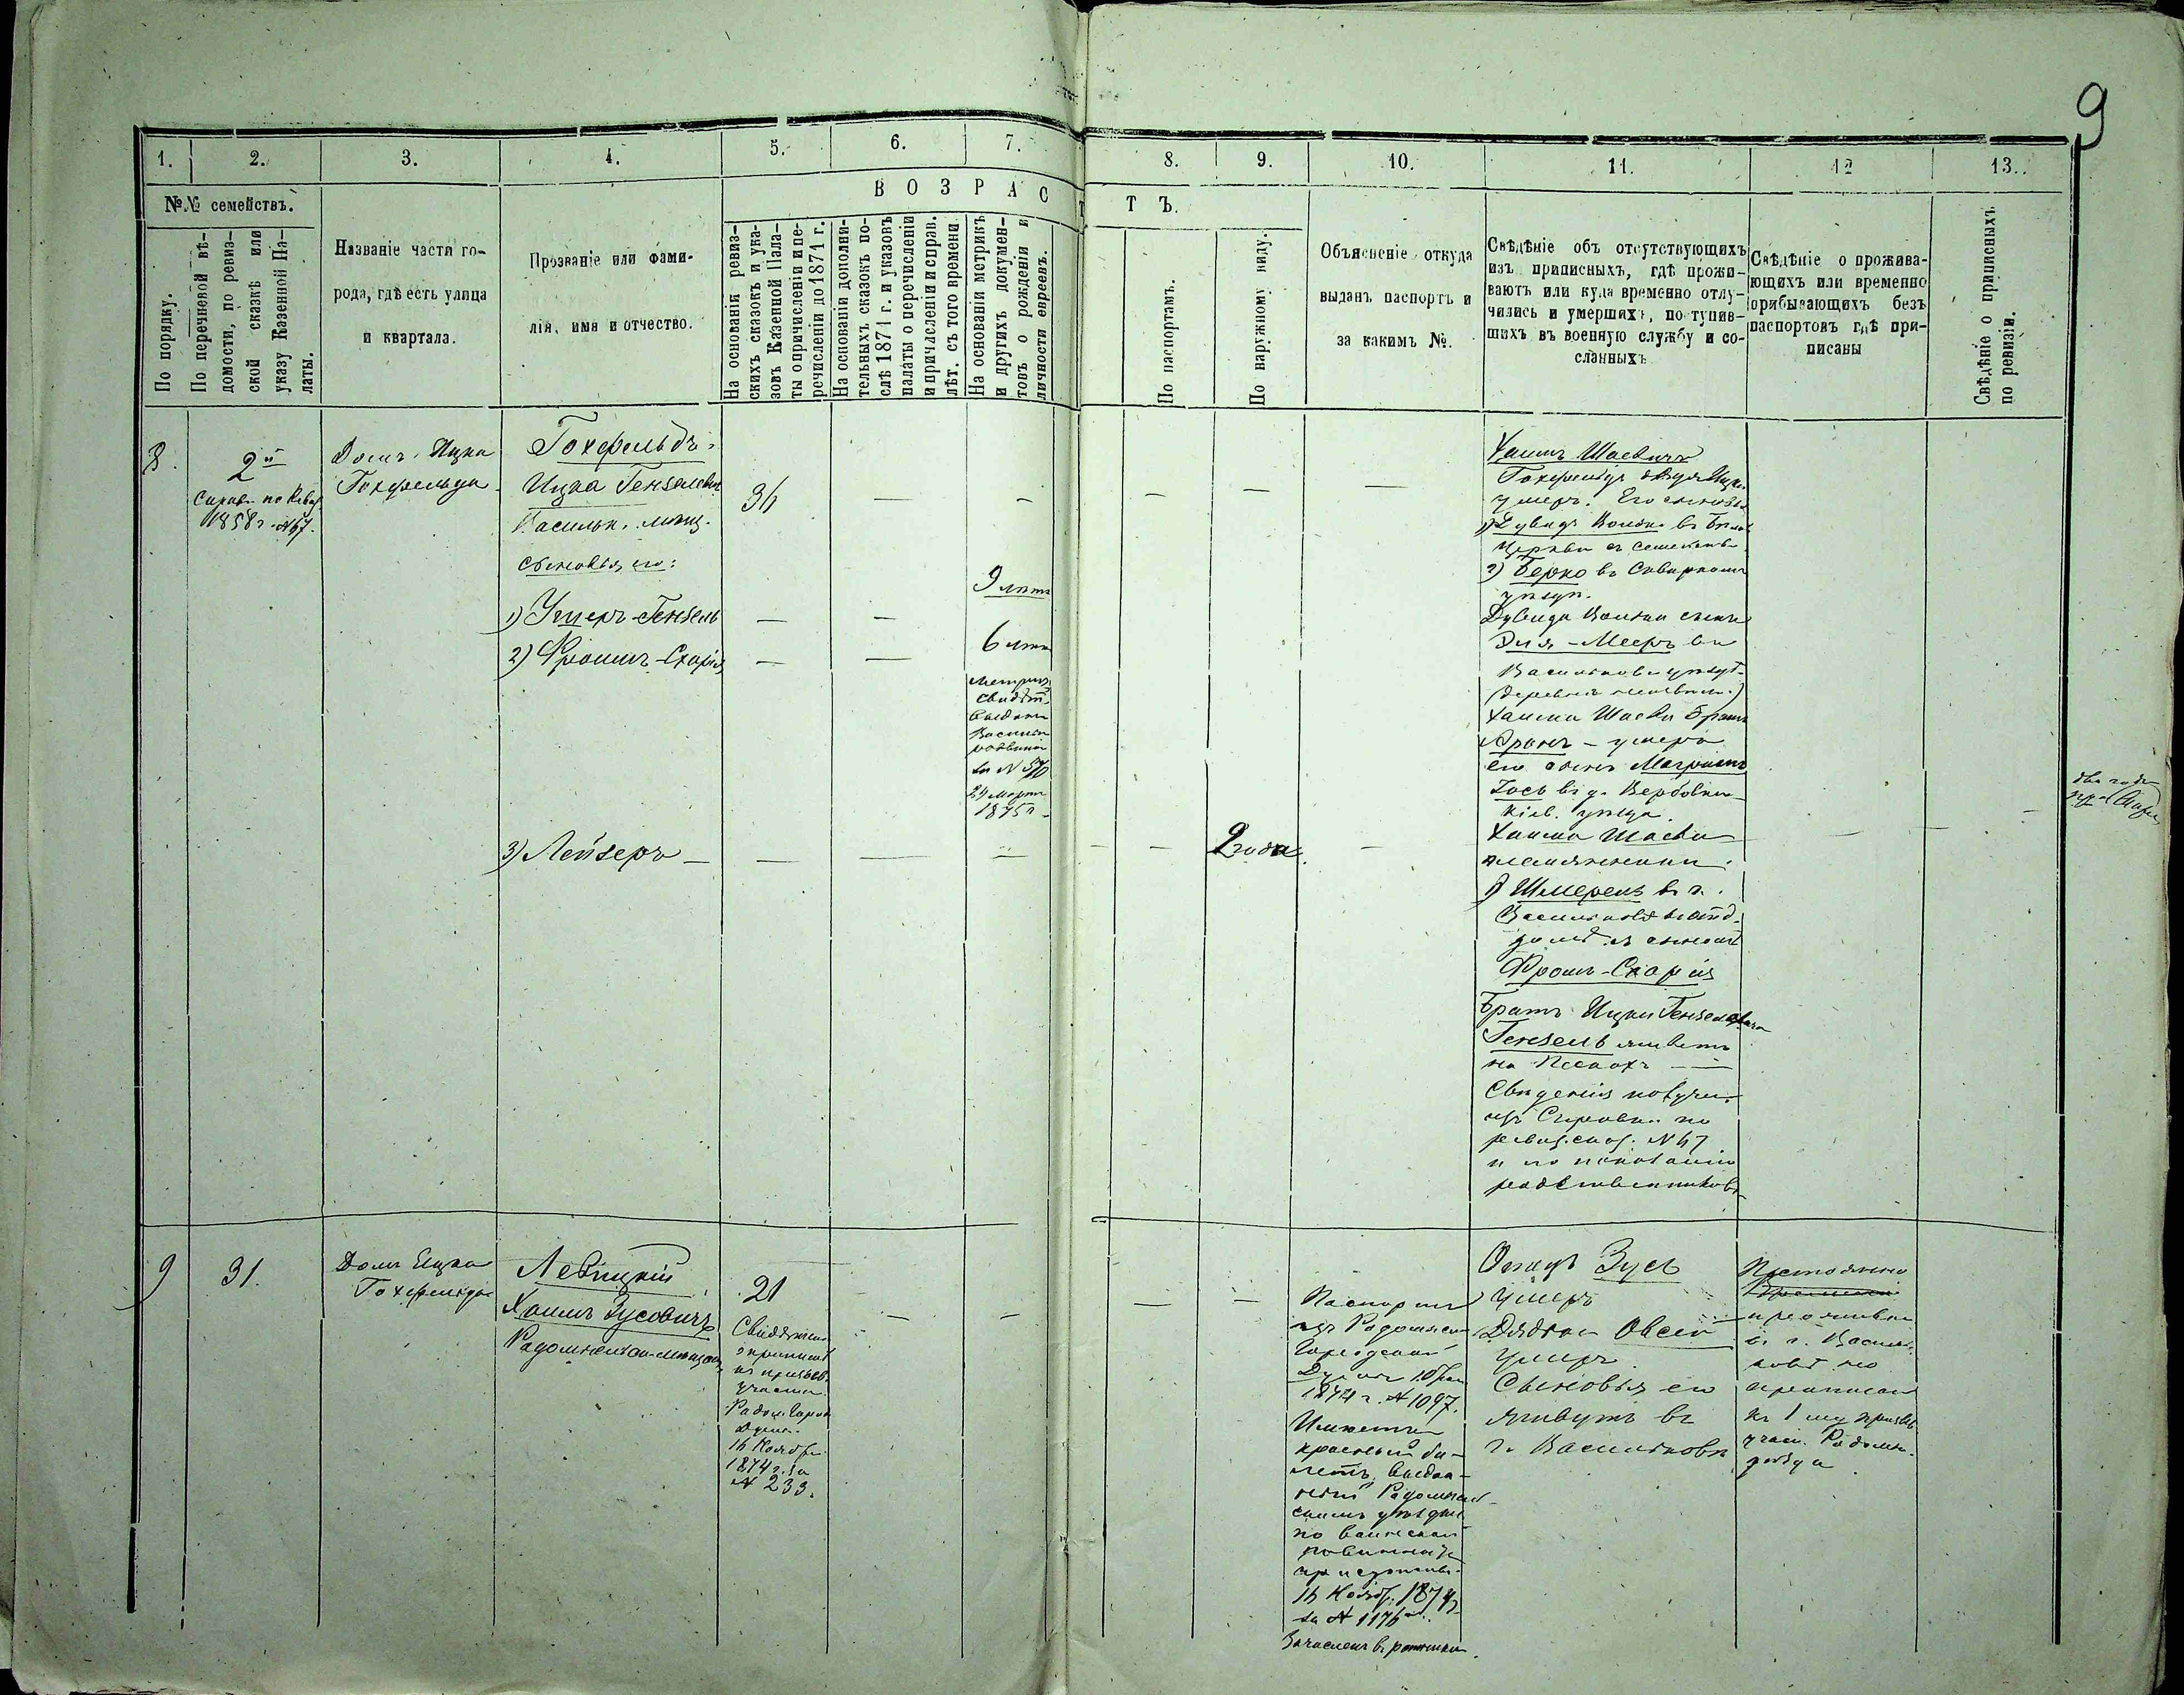 9
1.
2.
3.
4.
5.
6.
7.
8.
9.
10.
11.
12
13.
№№ семействъ.
По порядку.
По перечневой вѣ-
домости, по ревиз-
ской сказкѣ или
указу Казенной Па-
латы.
Названіе части го-
рода, гдѣ есть улица
и квартала.
Прозваніе или фами-
лія, имя и отчество.
В О З Р А С Т Ъ.
На основаніи ревиз-
скихъ сказокъ и ука-
зовъ Казенной Пала-
ты о причисленіи и пе-
речисленіи до 1871 г.
На основаніи дополни-
тельныхъ сказокъ по-
слѣ 1871 г. и указовъ
палаты о перечисленіи
и причисленіи и справ.
лѣт. съ того времени
На основаніи метрикъ
и другихъ докумен-
товъ о рожденіи и
личности евреевъ.
По паспортамъ.
По наружному виду.
Объясненіе откуда
выданъ паспортъ и
за какимъ №.
Свѣдѣніе объ отсутствующихъ
изъ приписныхъ, гдѣ прожи-
ваютъ или куда временно отлу-
чились и умершихъ, поступив-
шихъ въ военную службу и со-
сланныхъ
Свѣдѣніе о прожива-
ющихъ или временно
прибывающихъ безъ
паспортовъ гдѣ при-
писаны
Свѣдѣніе о приписныхъ
по ревизіи.
8.
2й
1858 г. №47.
Домъ Ицка
Гохфельда
Гохфельдъ
Ицка Гензелевъ
Васильк. мѣщ.
сыновья его:
1) Ушеръ-Гензель
2) Фроимъ-Схарія
3) Лейзеръ
36
9 лѣтъ
6 лѣтъ
Метрич.
свидѣт.
выдан.
за № 570
24 Марта
1875 г.
2 года
Хаимъ Шаевичъ
Гохфельдъ дядя Ицки
умеръ. Его сыновья
1) Дувидъ Волько въ Бѣлой
Церкви съ семействомъ
2) Берко въ Сквирскомъ
уѣздѣ.
Дувида Волька сынъ
Эля-Мееръ въ
Васильковск. уѣздѣ
Хаима Шаева братъ
Аронъ - умеръ
его сынъ
Іось въ д. Вербовкѣ
Кіев. уѣзда.
Хаима Шаева
племянники:
1) Шмерель въ г.
Васильковѣ
Фроимъ-Схарія
Братъ Ицки Гензелевича
Гензель живетъ
на Пескахъ
Свѣденія получен.
изъ Справки по
ревиз. сказ. №47
и по показанію
родственниковъ
два года
9
31.
Домъ Ицка
Гохфельда
Левицкій
Хаимъ Зусовичъ
Радомысльск. мѣщан.
21
Свидѣтел.
о припискѣ
къ призыв.
участку
Радом. Город.
Думы
16 Ноября
1874 г. за
№ 233.
Паспортъ
изъ Радомысл.
Городской
Думы
1874 г. № 1097.
Имѣетъ
красный би-
летъ, выдан-
ный Радомысль-
скимъ уѣзднымъ
по воинской
повинности
присутствіе.
16 Ноябр. 1874 г.
за № 1176
Зачисленъ въ ратники.
Отецъ Зусь
умеръ
Дядько Овсей
умеръ
Сыновья его
живутъ въ
г. Васильковѣ
Постоянно
проживаетъ
въ г. Василь-
ковѣ но
приписанъ
къ 1 му призыв.
участ. Радомысл.
уѣзда